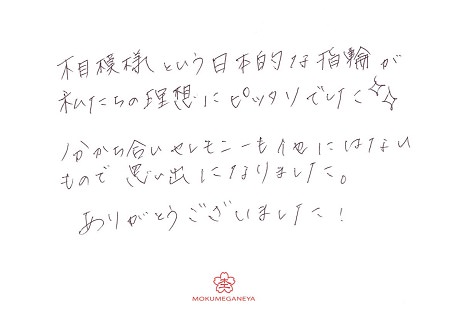 木目模様という日本的な指輪が
私たちの理想にピッタリでした✨
分かち合いセレモニーも他にはない
もので思い出になりました。
ありがとうございました！
杢
MOKUMEGANEYA